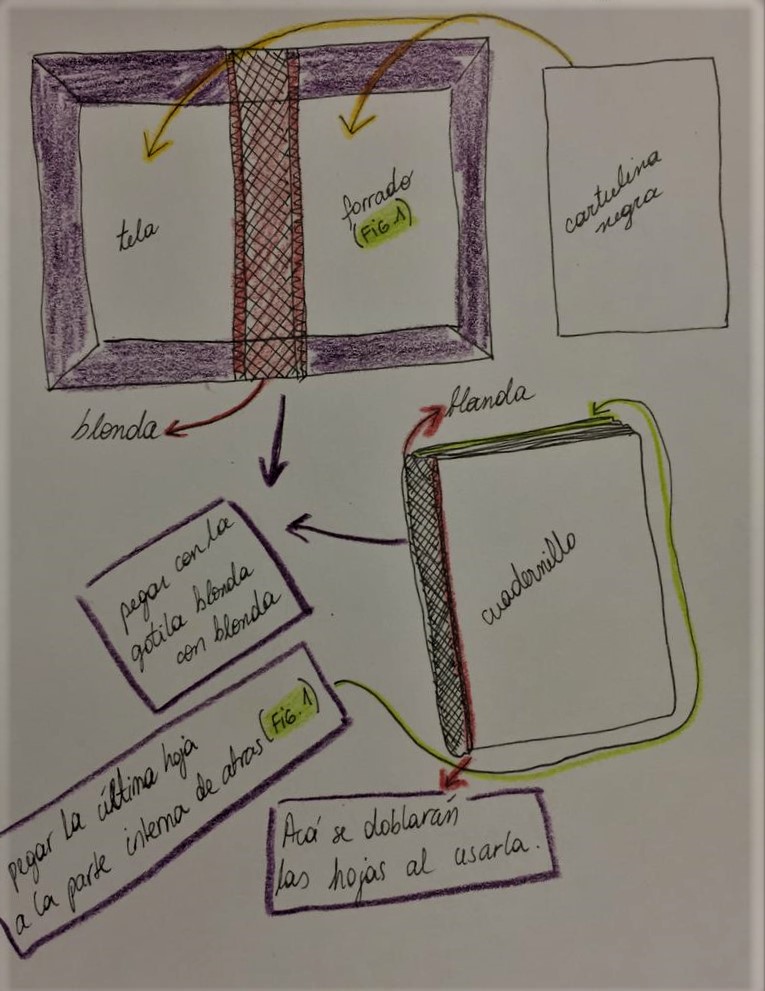 tela
forrado
(Fig. 1)
cartulina
negra
blonda
blanda
pegar con la
gotila blonda
con blonda
cuadernillo
pegar la última hoja
a la parte interna de atras (Fig. 1)
Acá se doblarán
las hojas al usarla.